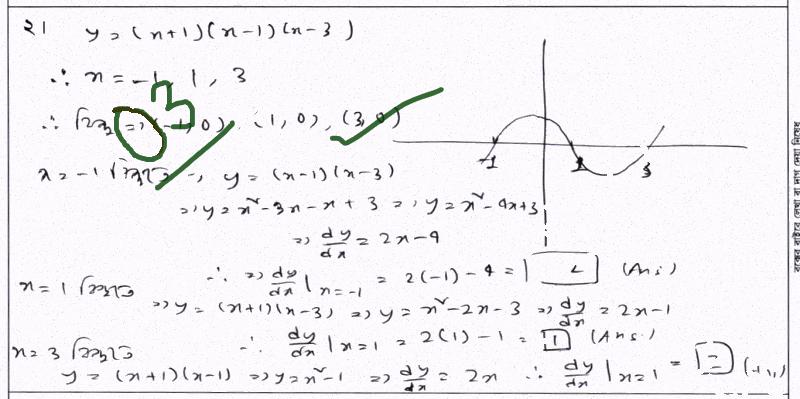 ২। y = (x+1)(x-1)(x-3)
∴ x = -1, 1, 3
∴ বিন্দু => (-1, 0), (1, 0), (3, 0)
3
-1 1 3
x = -1 বিন্দুতে -, y = (x-1)(x-3)
=> y = x² - 3x - x + 3 => y = x² - 4x + 3
=> dy/dx = 2x - 4
∴ => dy/dx | x=-1 = 2(-1) - 4 =
(Ans)
x = 1 বিন্দুতে
=> y = (x+1)(x-3) => y = x² - 2x - 3 => dy/dx = 2x - 1
∴ dy/dx | x=1 = 2(1) - 1 = 1 (Ans.)
x = 3 বিন্দুতে
y = (x+1)(x-1) => y = x² - 1 => dy/dx = 2x ∴ dy/dx | x=1 =